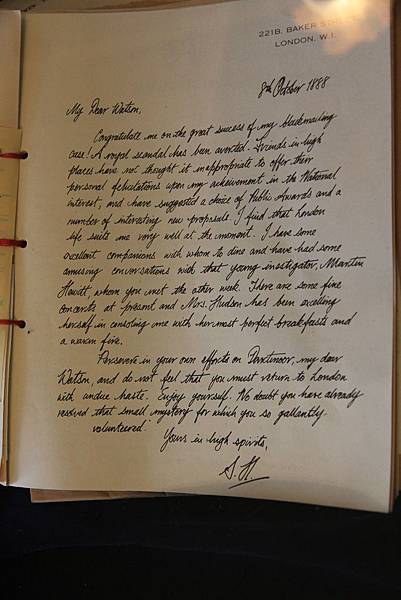 221B, BAKER STREET
LONDON, W.1.
8th October 1888
My Dear Watson,
Congratulate me on the great success of my blackmailing
case! A royal scandal has been averted. Friends in high
places have not thought it inappropriate to offer their
personal felicitations upon my achievement in the National
interest, and have suggested a choice of Public Awards and a
number of interesting new proposals. I find that London
life suits me very well at the moment. I have some
excellent companions with whom to dine and have had some
amusing conversations with that young investigator, Martin
Hewitt, whom you met the other week. There are some fine
concerts at present and Mrs. Hudson has been excelling
herself in enticing me with her most perfect breakfasts and
a warm fire.
Persevere in your own efforts on Dartmoor, my dear
Watson, and do not feel that you must return to London
with undue haste. Enjoy yourself. No doubt you have already
resolved that small mystery for which you so gallantly
volunteered!
Yours in high spirits,
S. H.